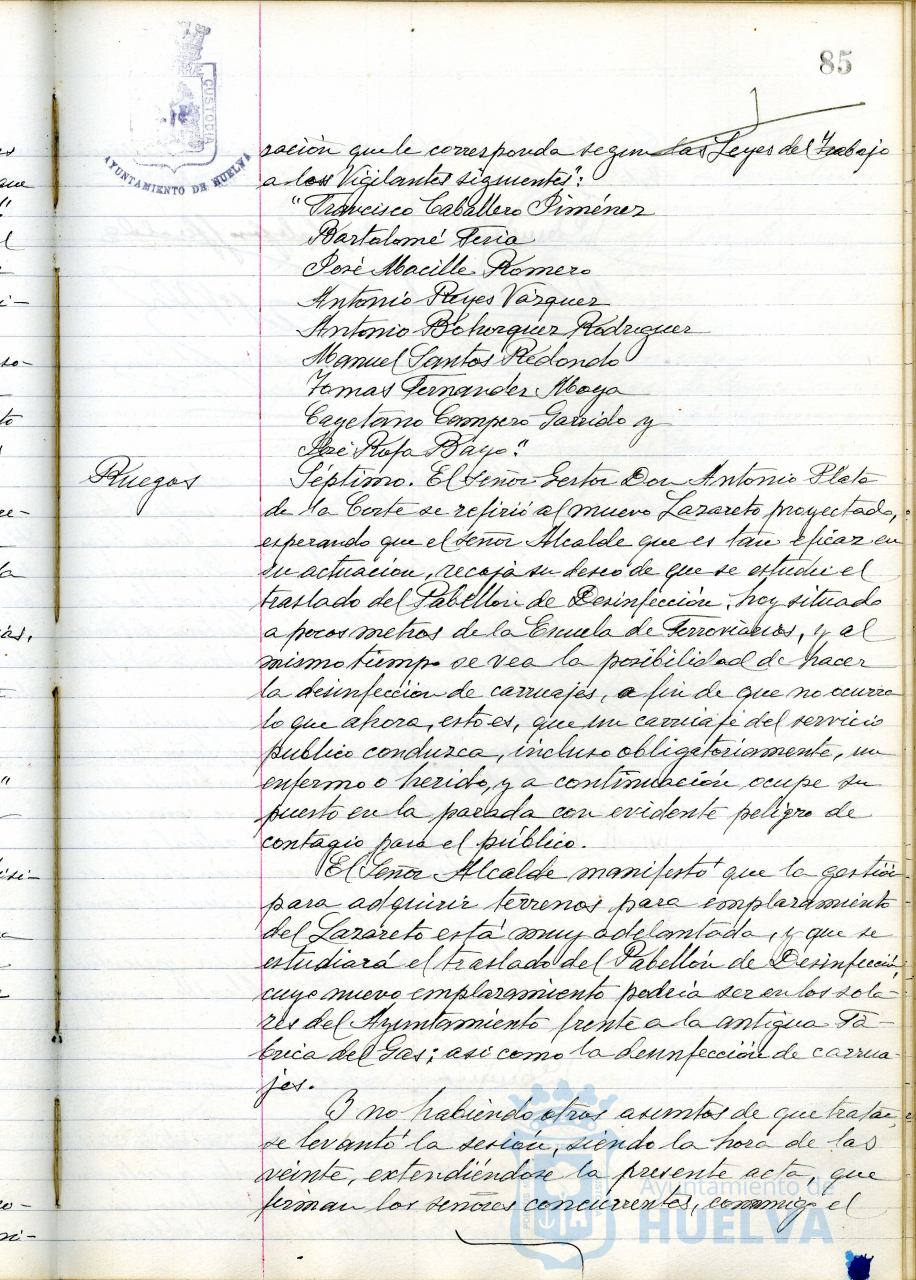 85
CUSTODIA
AYUNTAMIENTO DE HUELVA
ración que le corresponda segun las Leyes del Trabajo
a los Vigilantes siguientes":
"Francisco Caballero Jiménez
Bartolomé Feria
José Macille Romero
Antonio Reyes Vázquez
Antonio Bohorquez Rodriguez
Manuel Santos Redondo
Tomas Fernandez Moya
Cayetano Campero Garrido y
José Rofa Bayo."
Ruegos
Séptimo. El Señor Gestor Don Antonio Plata
de la Corte se refirió al nuevo Lazareto proyectado,
esperando que el Señor Alcalde que es tan eficaz en
su actuacion, recoja su deseo de que se estudie el
traslado del Pabellón de Desinfección, hoy situado
a pocos metros de la Escuela de Ferroviarios, y al
mismo tiempo se vea la posibilidad de hacer
la desinfección de carruajes, a fin de que no ocurra
lo que ahora, esto es, que un carruaje del servicio
publico conduzca, incluso obligatoriamente, un
enfermo o herido, y a continuación ocupe su
puesto en la parada con evidente peligro de
contagio para el público.
El Señor Alcalde manifestó que la gestión
para adquirir terrenos para emplazamiento
del Lazareto está muy adelantada, y que se
estudiará el traslado del Pabellón de Desinfección,
cuyo nuevo emplazamiento podria ser en los sola-
res del Ayuntamiento frente a la antigua Fá-
brica del Gas; asi como la desinfección de carrua-
jes.
Y no habiendo otros asuntos de que tratar,
se levantó la sesión, siendo la hora de las
veinte, extendiéndose la presente acta, que
firman los señores concurrentes, conmigo el
Ayuntamiento de
HUELVA